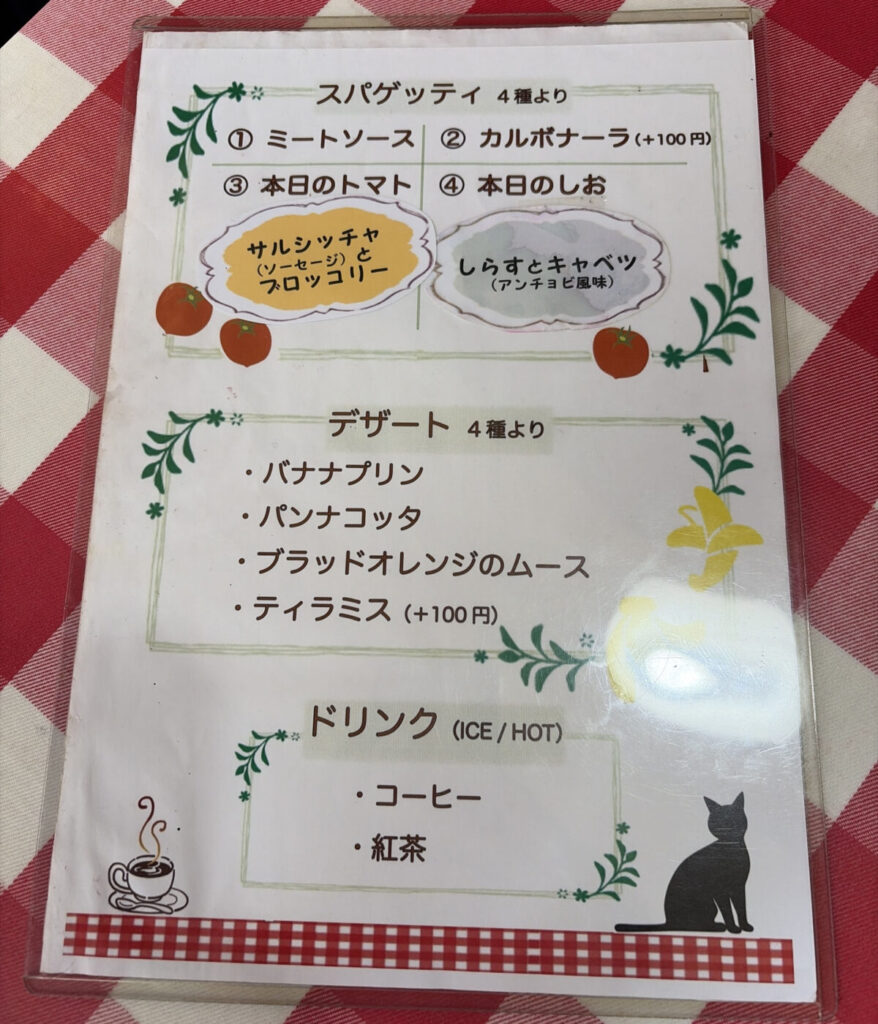 スパゲッティ 4種より
① ミートソース ② カルボナーラ(+100円)
③ 本日のトマト ④ 本日のしお
サルシッチャ
(ソーセージ)と
ブロッコリー
しらすとキャベツ
(アンチョビ風味)
デザート 4種より
・バナナプリン
・パンナコッタ
・ブラッドオレンジのムース
・ティラミス(+100円)
ドリンク(ICE / HOT)
・コーヒー
・紅茶